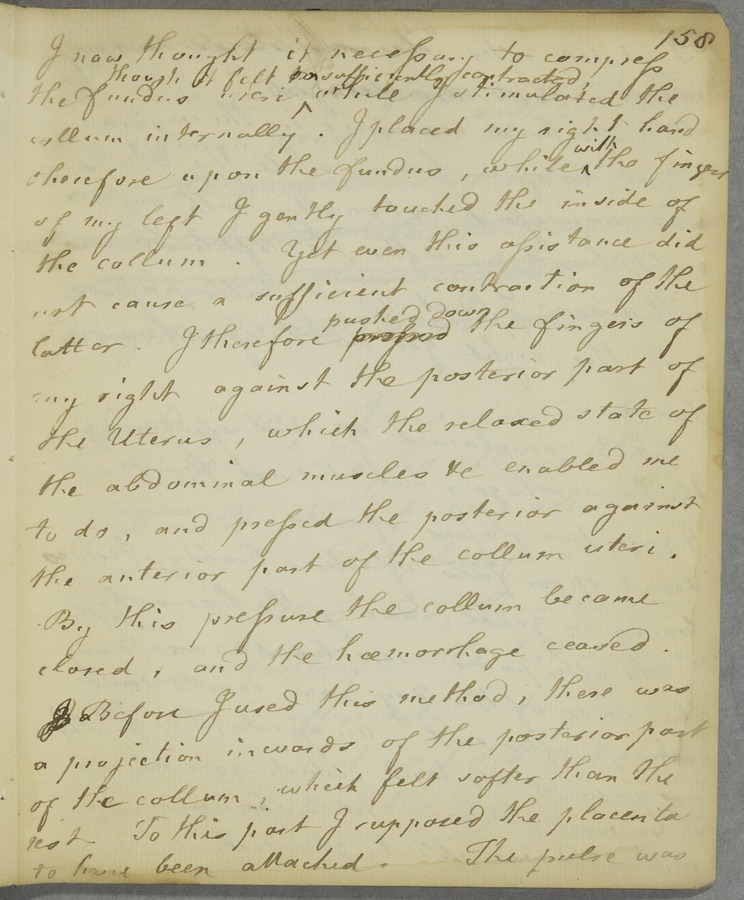 158
I now thought it necessary to compress
though it felt sufficiently contracted,
the fundus uteri ^ while I stimulated the
collum internally. I placed my right hand
therefore upon the fundus, while ^with the fingers
of my left I gently touched the inside of
the collum. Yet even this assistance did
not cause a sufficient contraction of the
latter. I therefore pressed pushed down the fingers of
my right against the posterior part of
the Uterus, which the relaxed state of
the abdominal muscles &c enabled me
to do, and pressed the posterior against
the anterior part of the collum uteri.
By this pressure the collum became
closed, and the hæmorrhage ceased.
Before I used this method, there was
a projection inwards of the posterior part
of the collum, which felt softer than the
rest. To this part I supposed the placenta
to have been attached. The pulse was